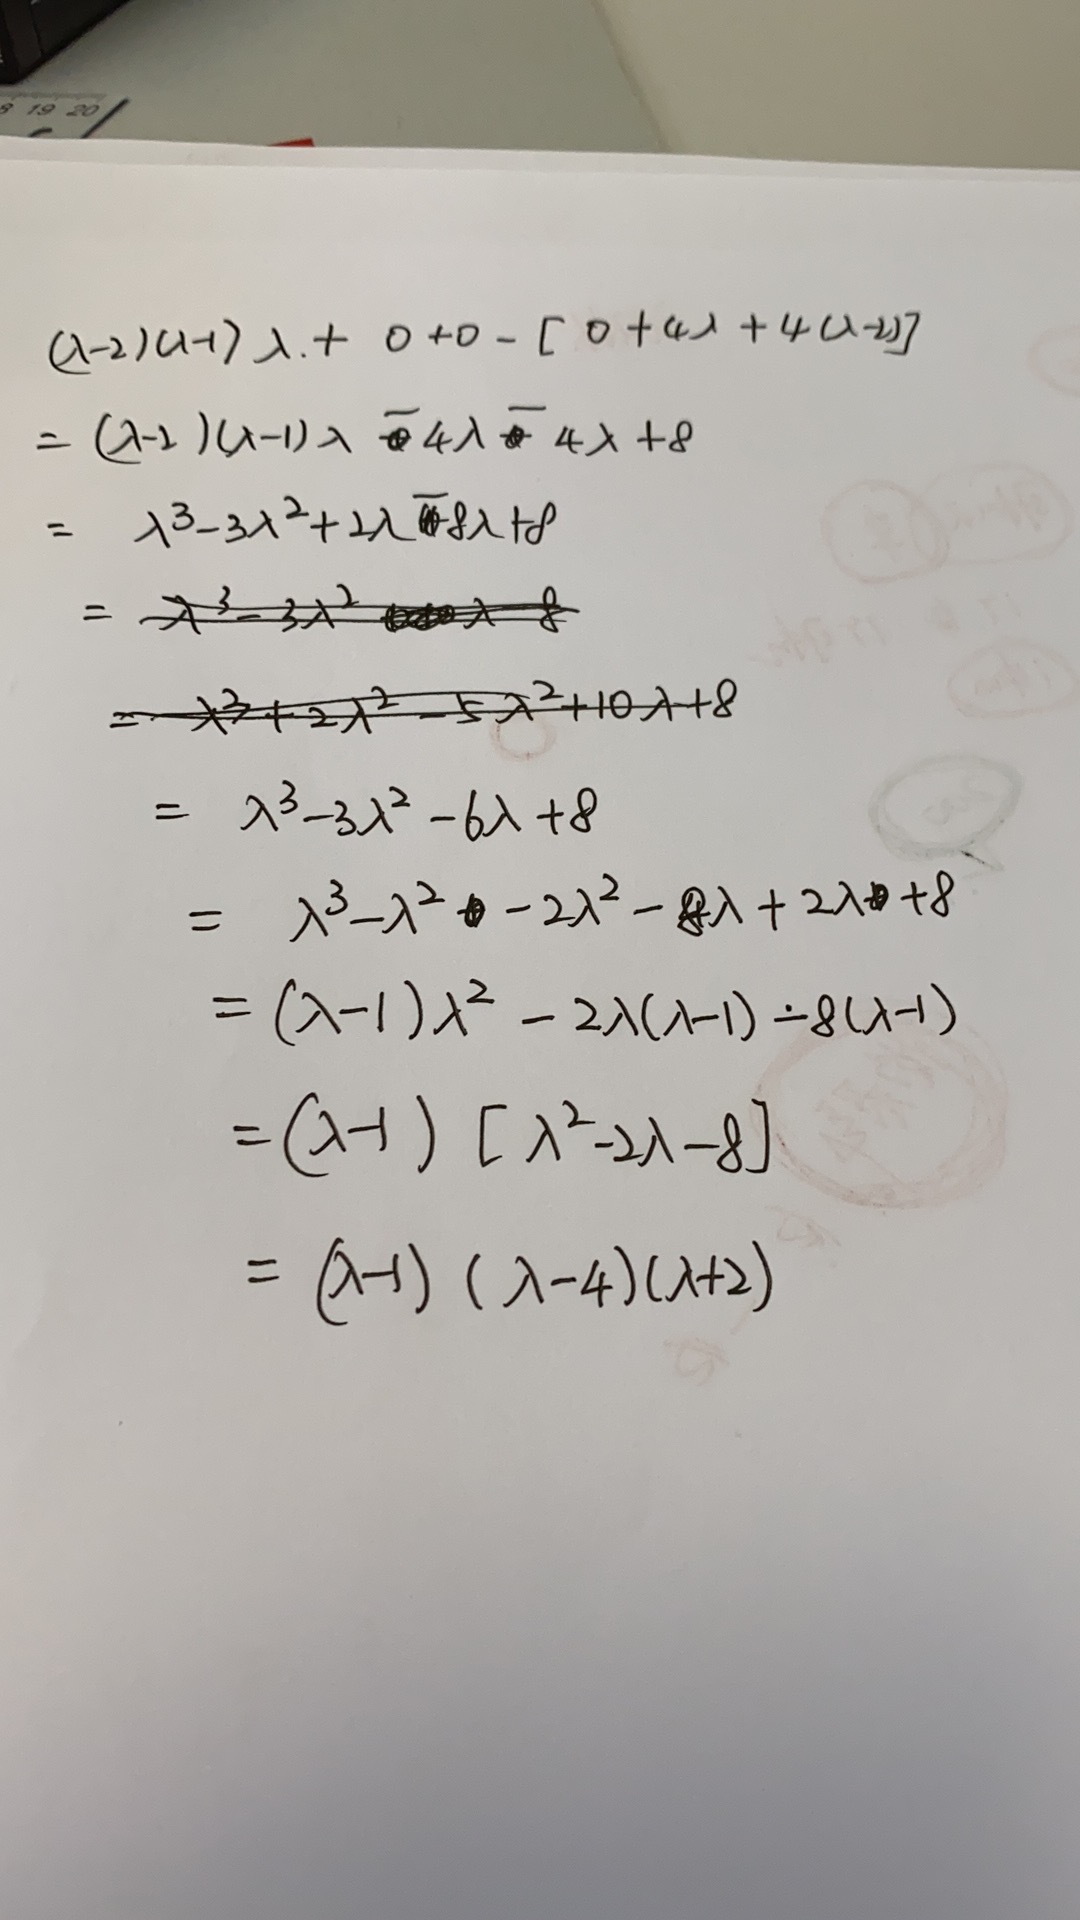 19 20
(λ-2)(λ-1)λ.+ 0+0-[0+4λ+4(λ-2)]
= (λ-2)(λ-1)λ - 4λ - 4λ+8
= λ³-3λ²+2λ-8λ+8
= λ³-3λ² λ-8
= λ³+2λ²-5λ²+10λ+8
= λ³-3λ²-6λ+8
= λ³-λ² -2λ²-8λ+2λ+8
=(λ-1)λ² - 2λ(λ-1) -8(λ-1)
=(λ-1) [λ²-2λ-8]
= (λ-1) (λ-4)(λ+2)